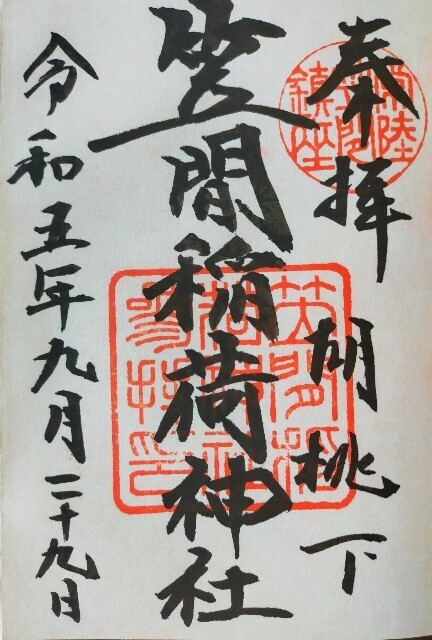 奉拝 胡桃下
常陸
笠間
鎮座
笠間稲荷神社
令和五年九月二十九日